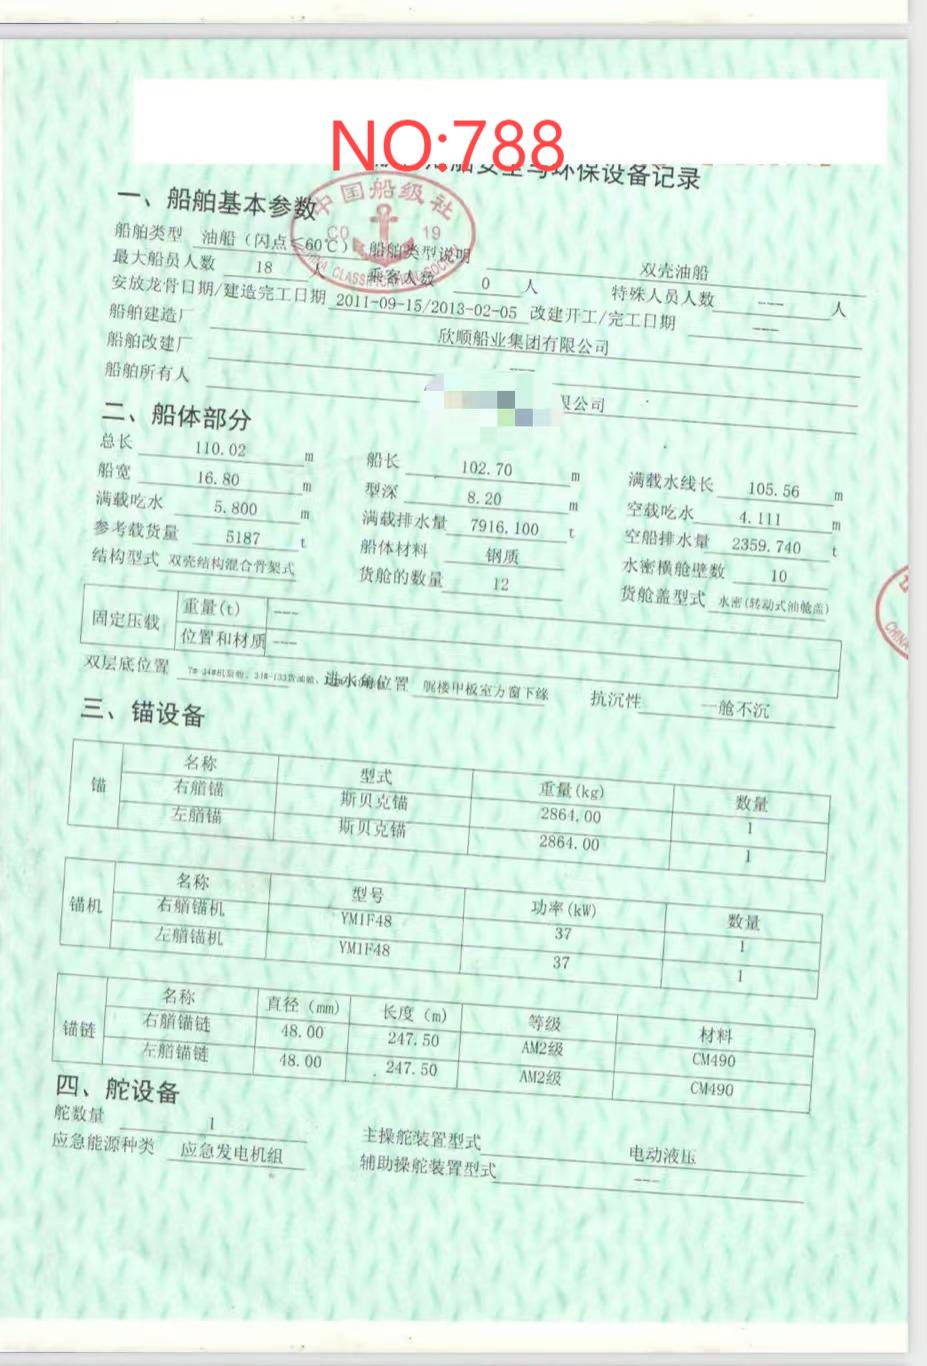 NO:788
环保设备记录
中国船级社
CHINA CLASSIFICATION SOCIETY
C0 19
一、船舶基本参数
船舶类型 油船（闪点≤60℃） 船舶类型说明 双壳油船
最大船员人数 18 人 乘客人数 0 人 特殊人员人数 --- 人
安放龙骨日期/建造完工日期 2011-09-15/2013-02-05 改建开工/完工日期 ---
船舶建造厂 欣顺船业集团有限公司
船舶改建厂 ---
船舶所有人 限公司
二、船体部分
总长 110.02 m 船长 102.70 m 满载水线长 105.56 m
船宽 16.80 m 型深 8.20 m 空载吃水 4.111 m
满载吃水 5.800 m 满载排水量 7916.100 t 空船排水量 2359.740 t
参考载货量 5187 t 船体材料 钢质 水密横舱壁数 10
结构型式 双壳结构混合骨架式 货舱的数量 12 货舱盖型式 水密(转动式油舱盖)
固定压载 重量(t) ---
位置和材质 ---
双层底位置 进水角位置 艉楼甲板室方窗下缘 抗沉性 一舱不沉
三、锚设备
锚 名称 型式 重量(kg) 数量
右艏锚 斯贝克锚 2864.00 1
左艏锚 斯贝克锚 2864.00 1
锚机 名称 型号 功率(kW) 数量
右艏锚机 YM1F48 37 1
左艏锚机 YM1F48 37 1
锚链 名称 直径（mm） 长度（m） 等级 材料
右艏锚链 48.00 247.50 AM2级 CM490
左艏锚链 48.00 247.50 AM2级 CM490
四、舵设备
舵数量 1 主操舵装置型式 电动液压
应急能源种类 应急发电机组 辅助操舵装置型式 ---
CHINA